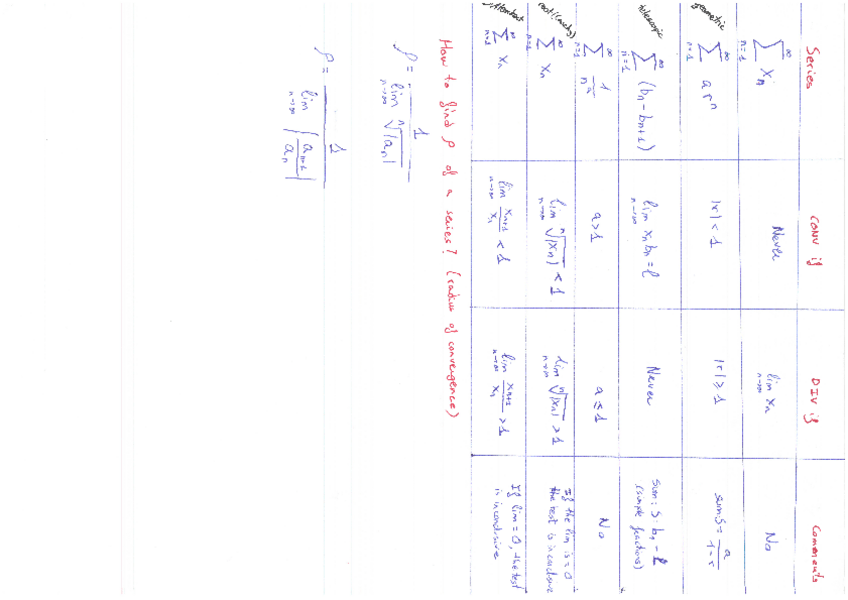 Series CONV if DIV if Comments
∞ Σ n=1 Xn Never lim n→∞ Xn No
geometric ∞ Σ n=1 a r^n |r| < 1 |r| ≥ 1 sum: S = a / 1-r
telescopic ∞ Σ n=1 (bn - bn+1) lim n→∞ Xn bn = l Never sum: S: b1 - l
(simple fractions)
∞ Σ n=1 1 / n^a a > 1 a ≤ 1 No
root (Cauchy) ∞ Σ n=1 Xn lim n→∞ n√|Xn| < 1 lim n→∞ n√|Xn| > 1 If the lim is = 0
the test is inconclusive
∞ Σ n=1 Xn lim n→∞ Xn+1 / Xn < 1 lim n→∞ Xn+1 / Xn > 1 If lim = 0, the test
is inconclusive
How to find ρ of a series? (radius of convergence)
ρ = 1 / lim n→∞ n√|an|
ρ = 1 / lim n→∞ |an+1 / an|